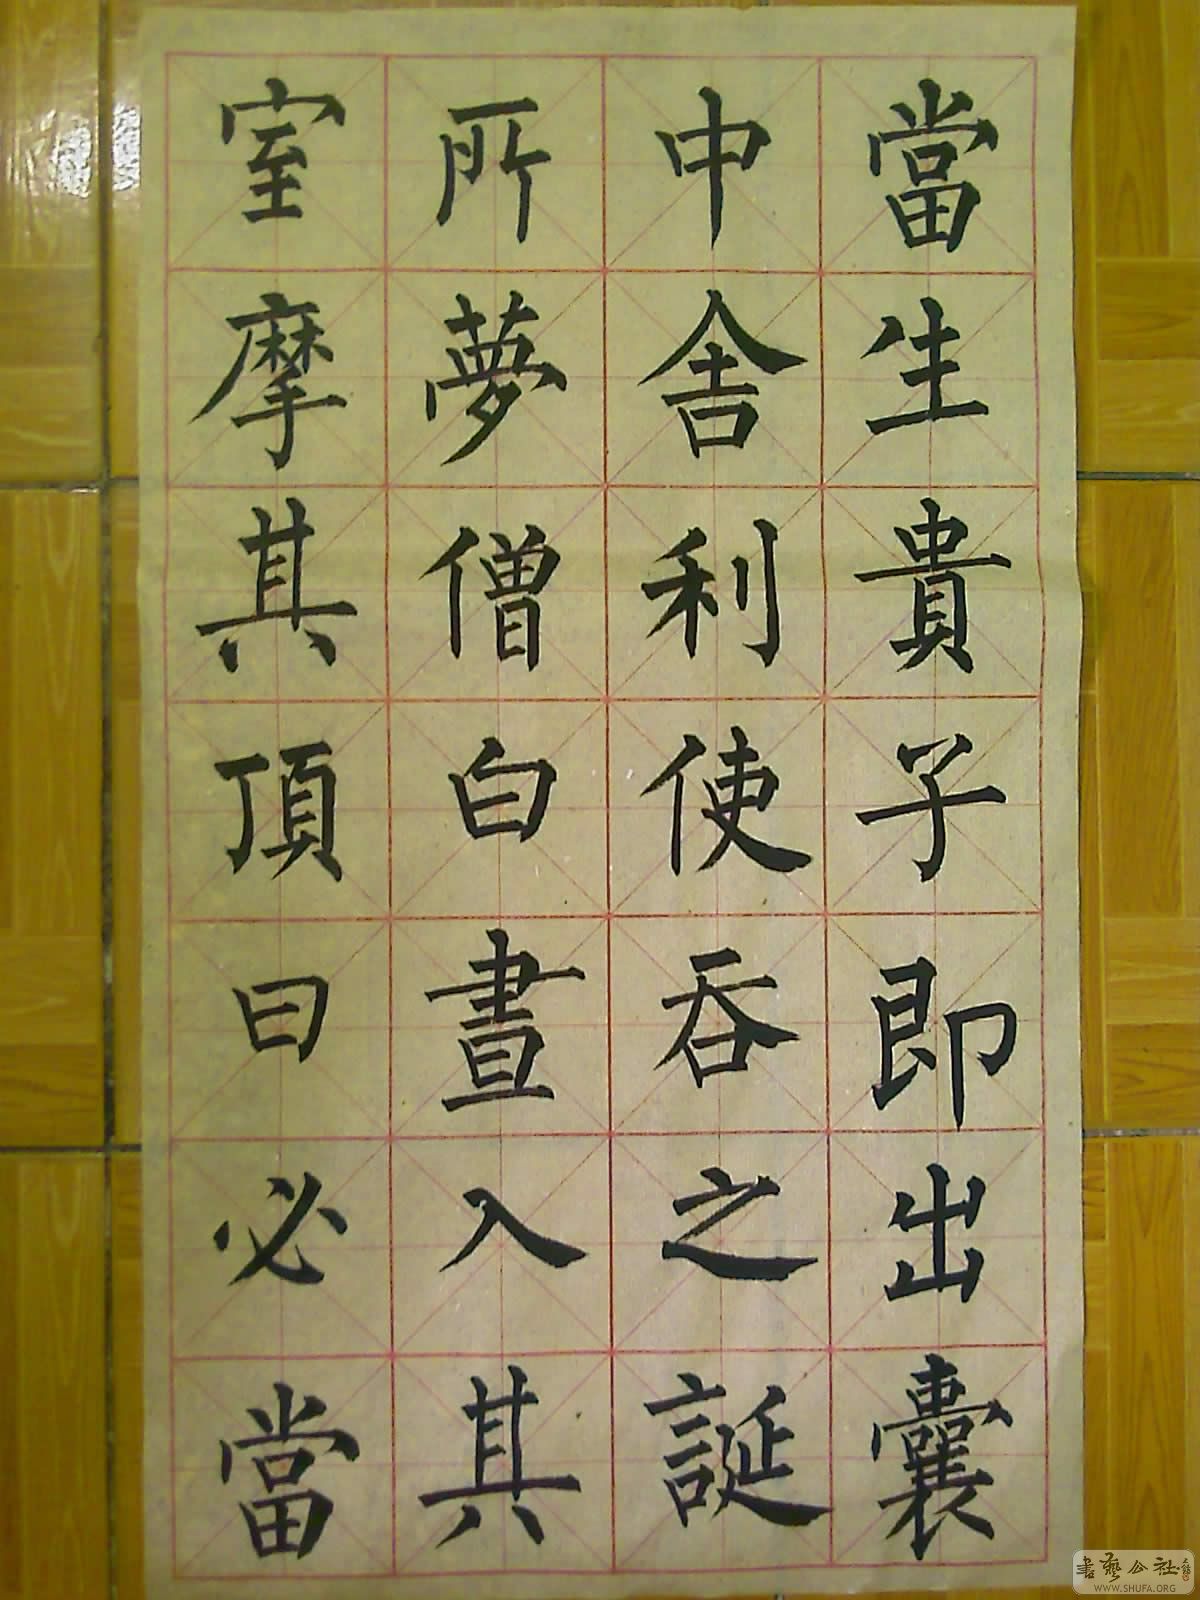 當生貴子即出囊
中舍利使吞之誕
所夢僧白晝入其
室摩其頂曰必當
書藝公社
WWW.SHUFA.ORG